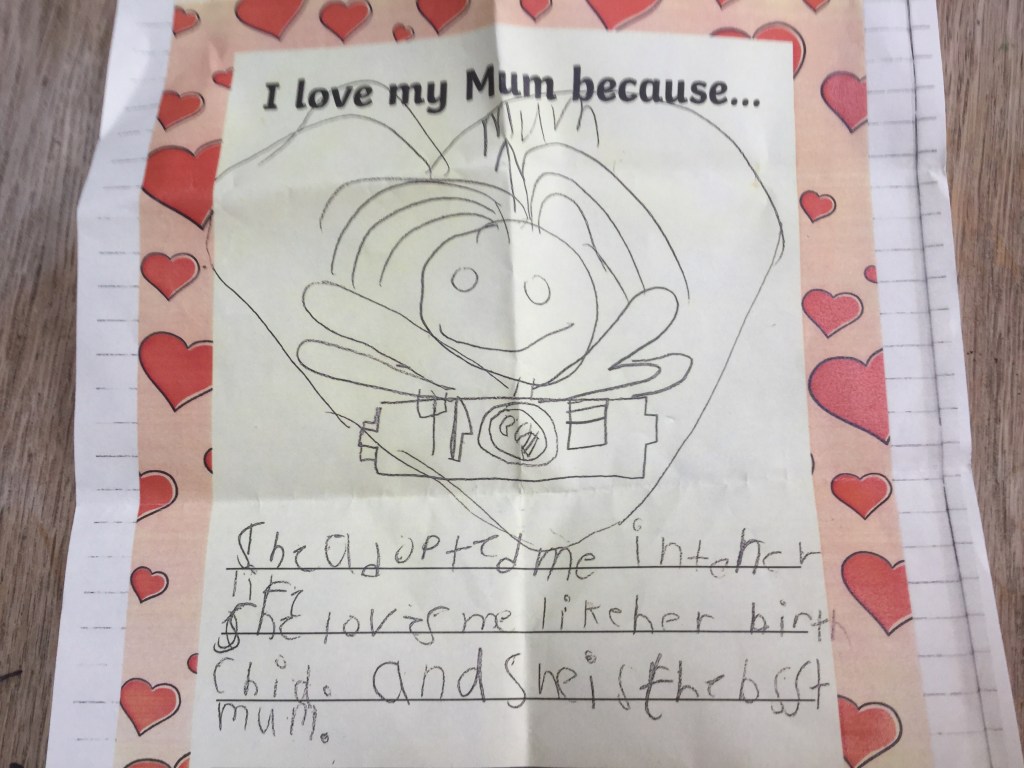 I love my Mum because...
Mum
She adopted me inteher
life
She loves me like her birth
Chid. and She is the bsst
mum.